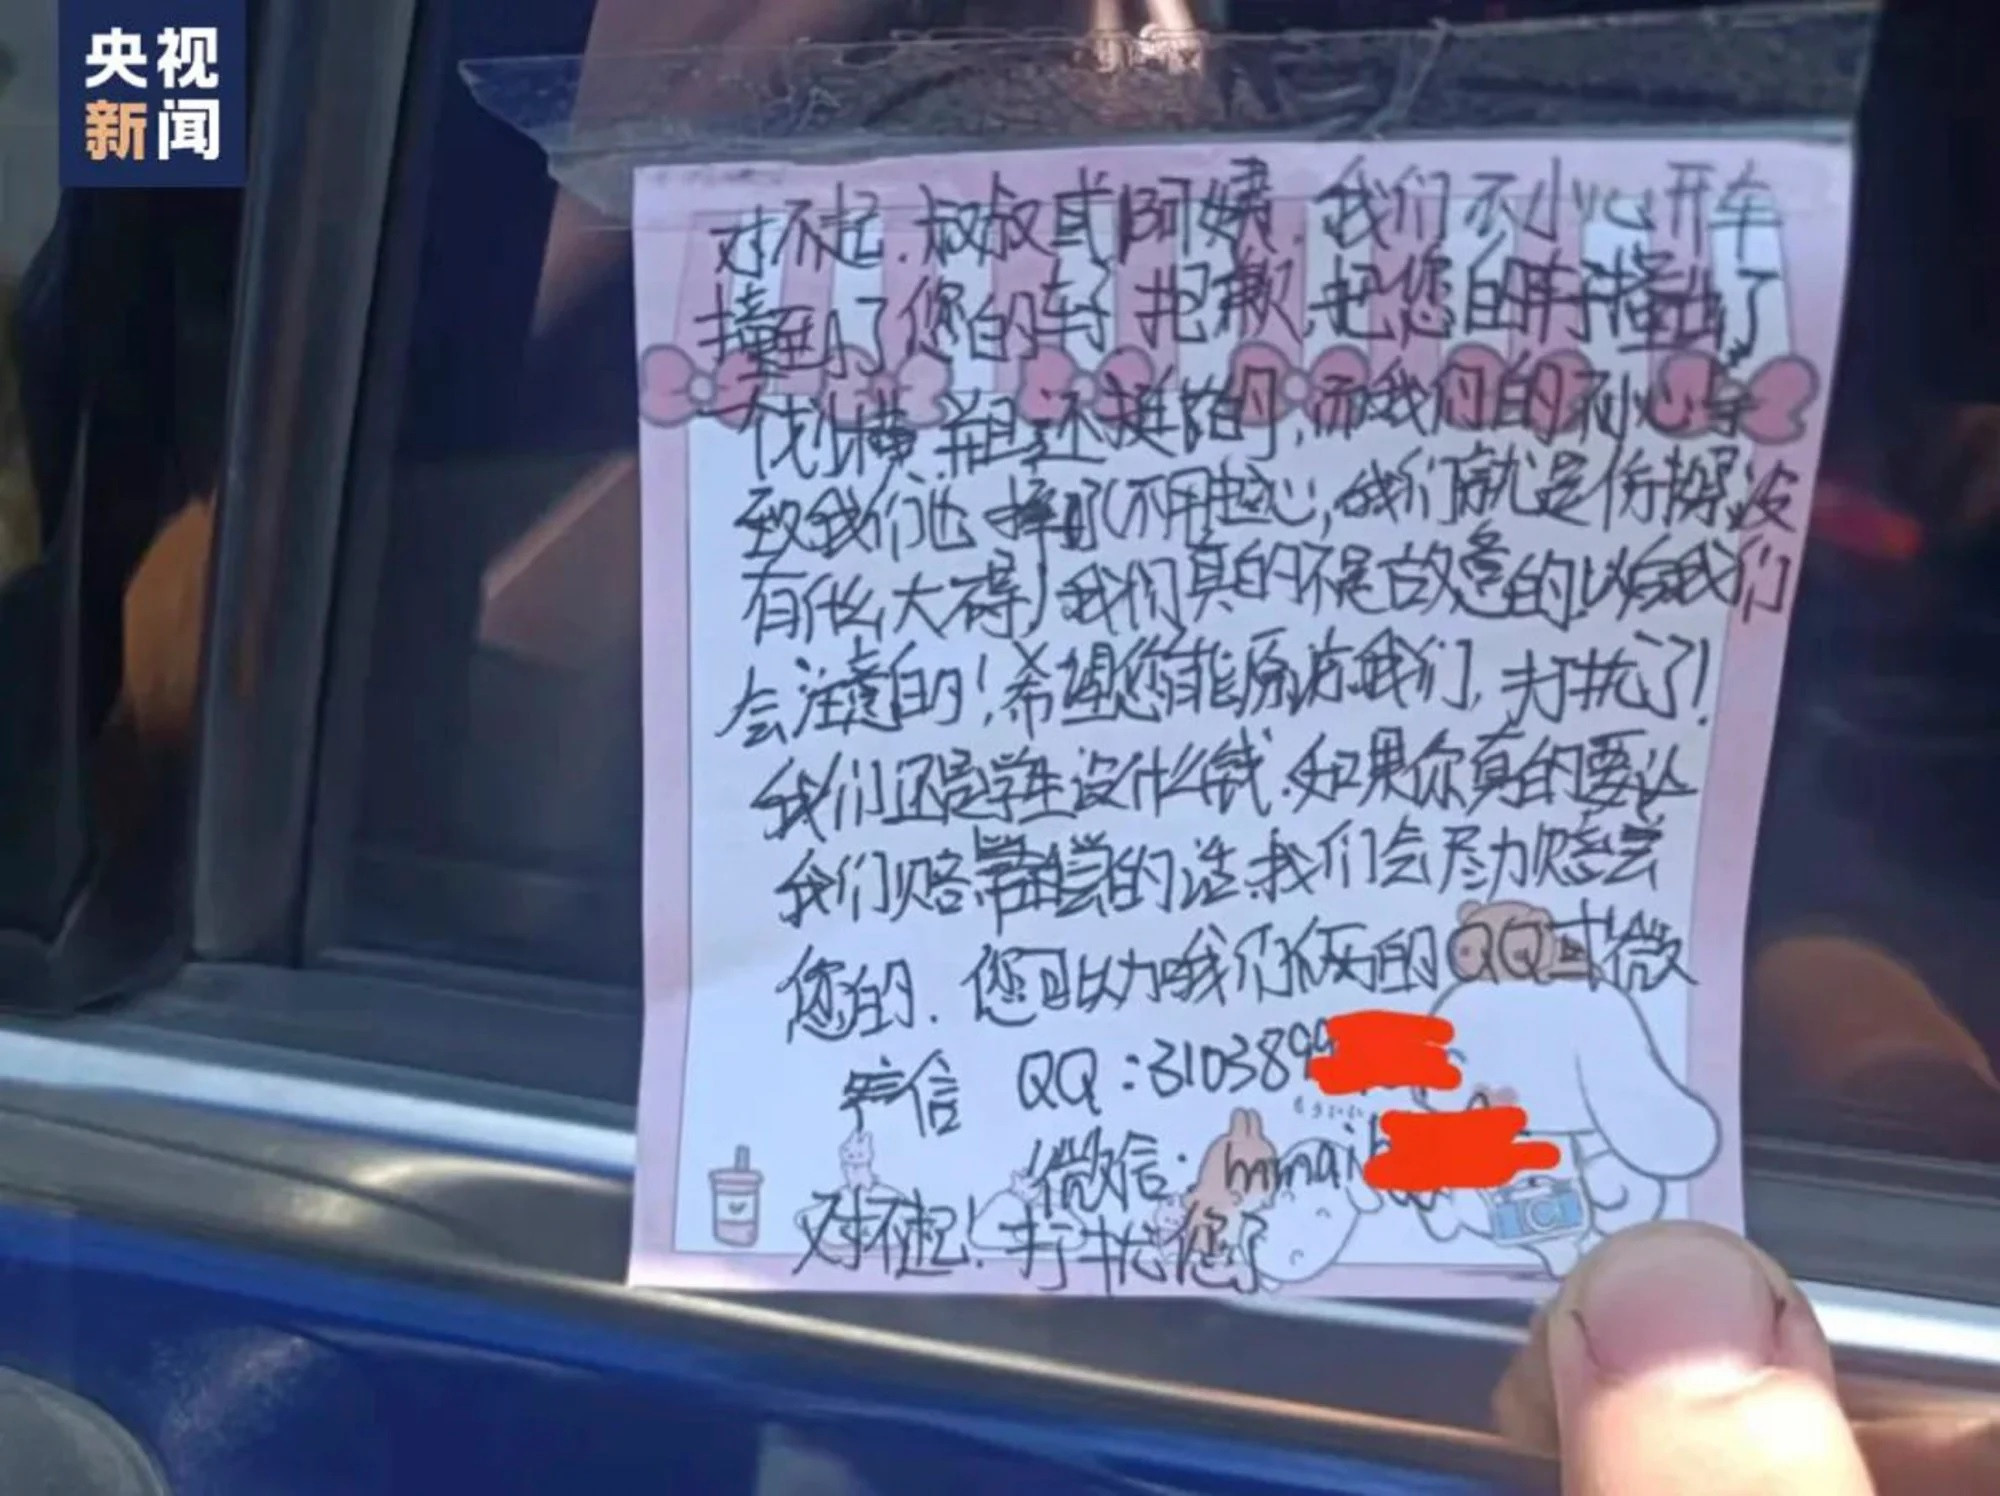 央视
新闻
对不起.叔叔或阿姨.我们不小心开车
撞到了您的车子抱歉,把您的车子撞出了
个划横,并且还挺深的,而我们的不小心导
致我们也摔了(不用担心,我们就是体摔,没
有什么大碍)我们真的不是故意的以后我们
会注意的!希望您能原谅我们,打扰了!
我们还是学生没什么钱.如果你真的要让
我们赔偿的话.我们会尽力赔尝
您的.您可以加我们俩的QQ或微
信 QQ:3103899
微信:mmai
对不起!打扰您了